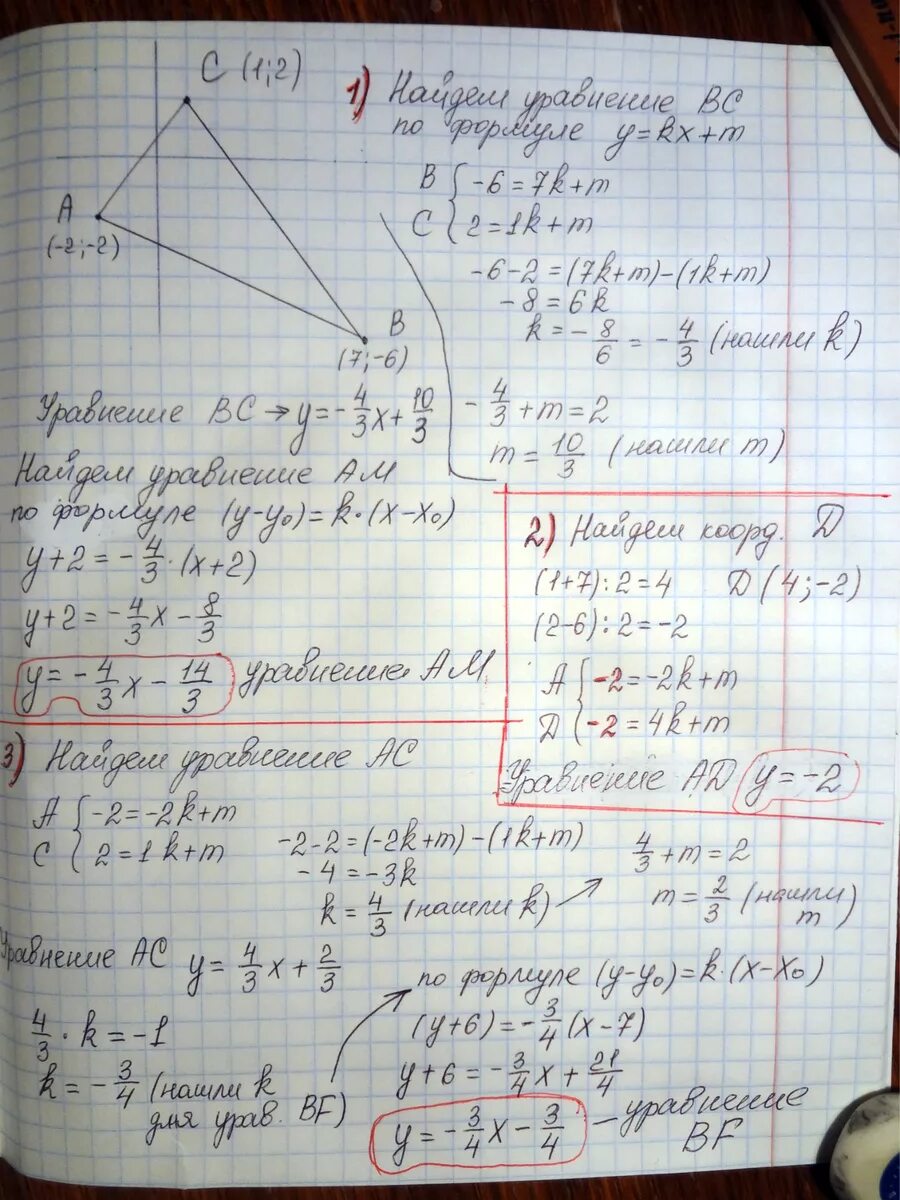 C (1;2)
A
(-2;-2)
B
(7;-6)
1) Найдем уравнение BC
по формуле y=kx+m
B { -6=7k+m
C { 2=1k+m
-6-2=(7k+m)-(1k+m)
-8=6k
k=-8/6=-4/3 (нашли k)
-4/3+m=2
m=10/3 (нашли m)
Уравнение BC→y=-4/3x+10/3
Найдем уравнение AM
по формуле (y-y₀)=k·(x-x₀)
y+2=-4/3·(x+2)
y+2=-4/3x-8/3
y=-4/3x-14/3 уравнение AM
2) Найдем коорд. D
(1+7):2=4 D(4;-2)
(2-6):2=-2
A { -2=-2k+m
D { -2=4k+m
Уравнение AD y=-2
3) Найдем уравнение AC
A { -2=-2k+m
C { 2=1k+m
-2-2=(-2k+m)-(1k+m)
-4=-3k
k=4/3 (нашли k)
4/3+m=2
m=2/3 (нашли
m)
Уравнение AC y=4/3x+2/3
4/3·k=-1
k=-3/4 (нашли k
для урав. BF)
по формуле (y-y₀)=k·(x-x₀)
(y+6)=-3/4(x-7)
y+6=-3/4x+21/4
y=-3/4x-3/4 -уравнение
BF